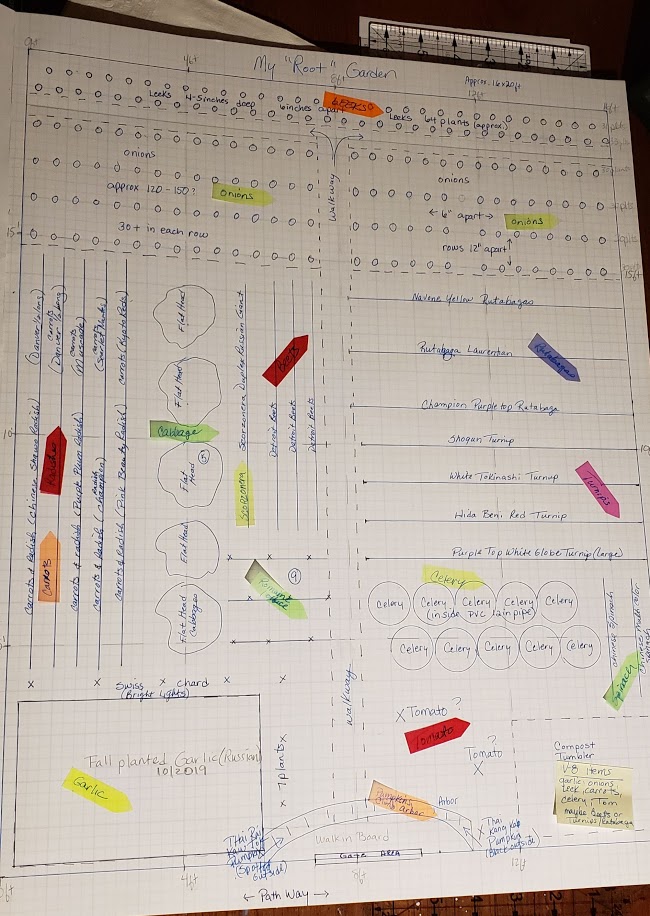 My "Root" Garden
Approx. 16x20ft
0ft
4ft
8ft
12ft
Leeks 4-5 inches deep 6 inches apart
LEEKS
Leeks 64 plants (approx.)
onions
approx 120-150?
onions
30+ in each row
Walkway
onions
← 6" apart →
onions
rows 12" apart
15ft
15ft
Carrots & Radish (Chinese Shawo Radish)
(Danver ½ long)
Carrots
(Danver ½ long)
Carrots & radish (Purple Plum Radish)
Carrots
(Muscade)
Carrots & Radish (Champion)
Carrots
(Scarlet Nantes)
Carrots & Radish (Pink Beauty Radish)
Carrots (Kyoto Reds)
Radishes
Carrots
Flat Head
Flat Head
Cabbage
Flat Head
5
Flat Head
Flat Head Cabbages
Scorzonera, Duplex Russian Giant
Scorzonera
Detroit Beets
Detroit Beets
Detroit Beets
Beets
9
Navone Yellow Rutabagas
Rutabaga Laurentian
Rutabagas
Champion Purple top Rutabaga
Shogun Turnip
White Tokinashi Turnip
Turnips
Hida Beni Red Turnip
Purple Top White Globe Turnip (Large)
Celery
Celery Celery Celery Celery Celery
(inside PVC 12in pipe)
Celery Celery Celery Celery Celery
Chinese Spinach
Chinese Multicolor Spinach
Spinach
Swiss chard
(Bright Lights)
Walkway
X Tomato ?
Tomato
Tomato ?
X
Fall planted Garlic (Russian)
10/2019
Garlic
x 7 plants x
Compost
Tumbler
V-8 items
garlic, onions
Leek, carrots,
celery, Tom
maybe beets or
Turnips/Rutabaga
Pumpkins
Arbor
Walkin Board
Gate Area
Thai Kang Kob
Pumpkin
4ft
8ft
12ft
← Path Way →